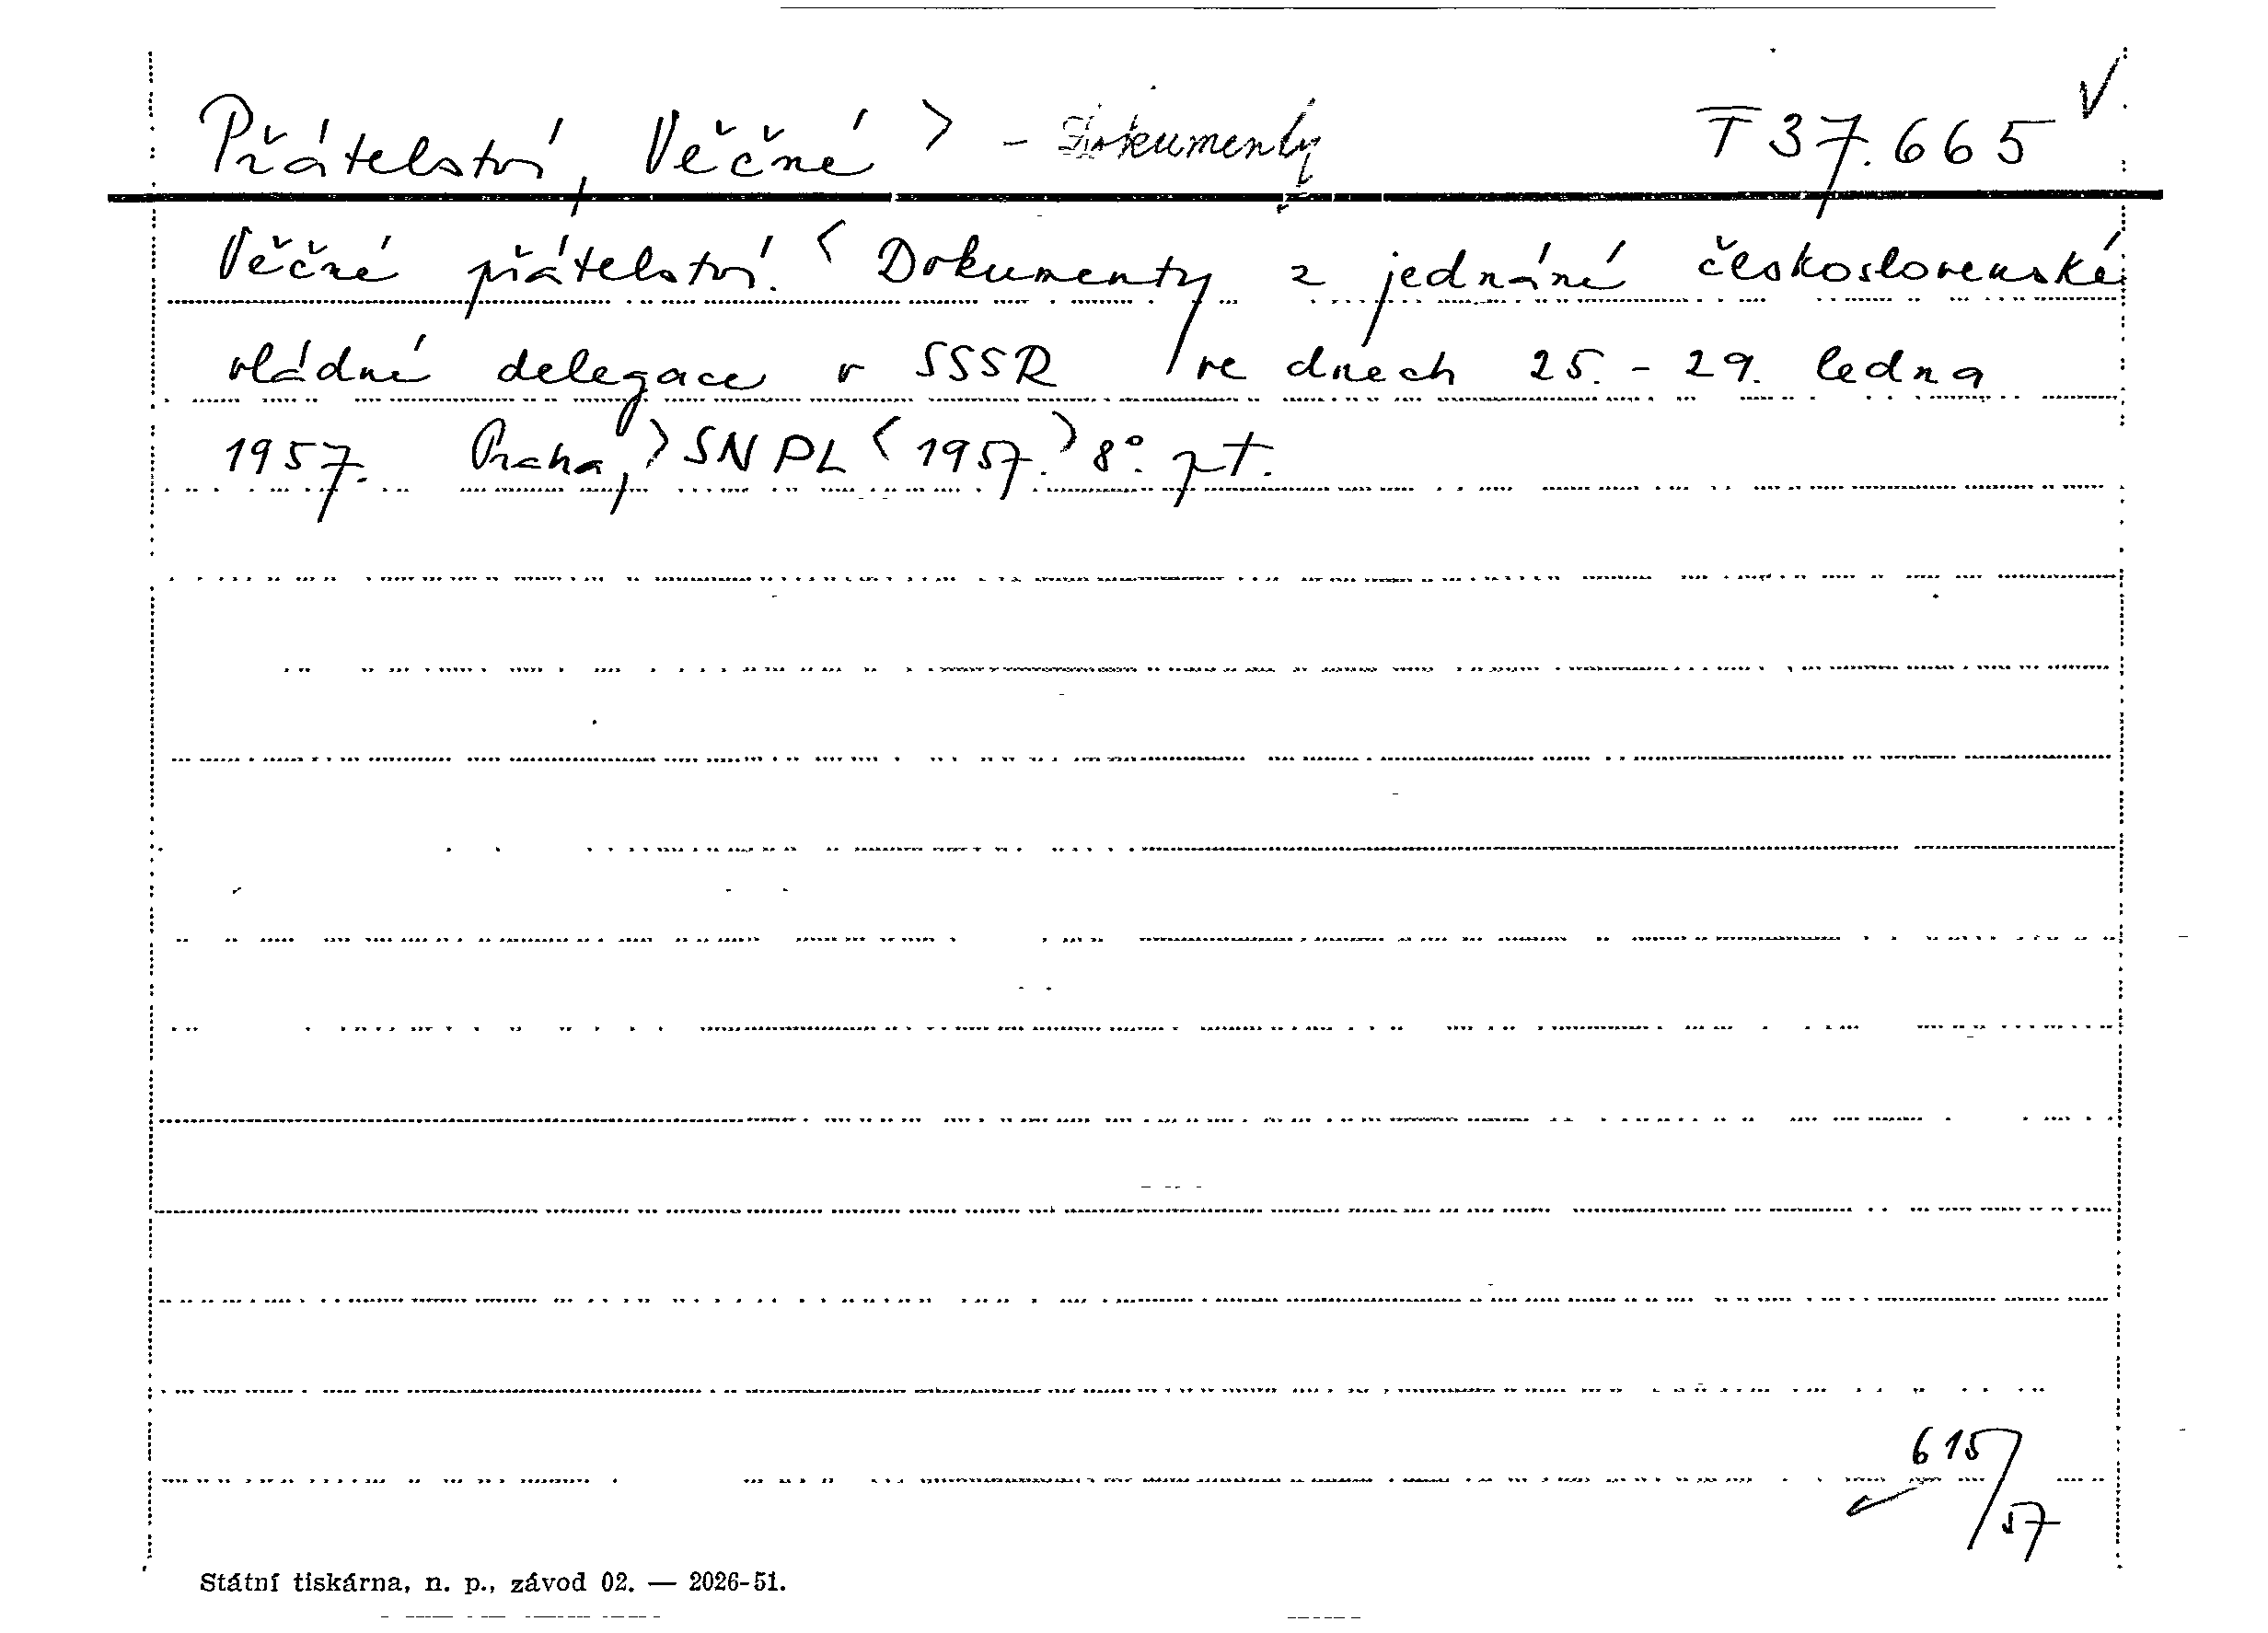 Přátelství, Věčné > - Dokumenty T 37.665 √
Věčné přátelství. < Dokumenty z jednání československé
vládní delegace v SSSR ve dnech 25. - 29. ledna
1957. Praha, > SNPL < 1957. > 8°. pt.
615/57
Státní tiskárna, n. p., závod 02. — 2026-51.